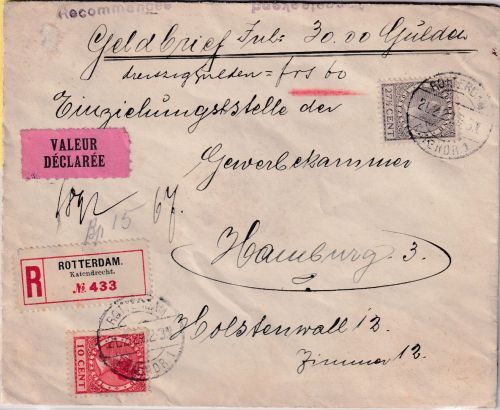 Recommandée
Geldbrief Inh: 30.00 Gulden
dreiszig gulden = frs 60
Einziehungsstelle der
27½ CENT
VALEUR
DÉCLARÉE
Gewerbekammer
15
67
Hamburg 3.
R
ROTTERDAM.
Katendrecht.
№ 433
Holstenwall 12
Zimmer 12.
10 CENT